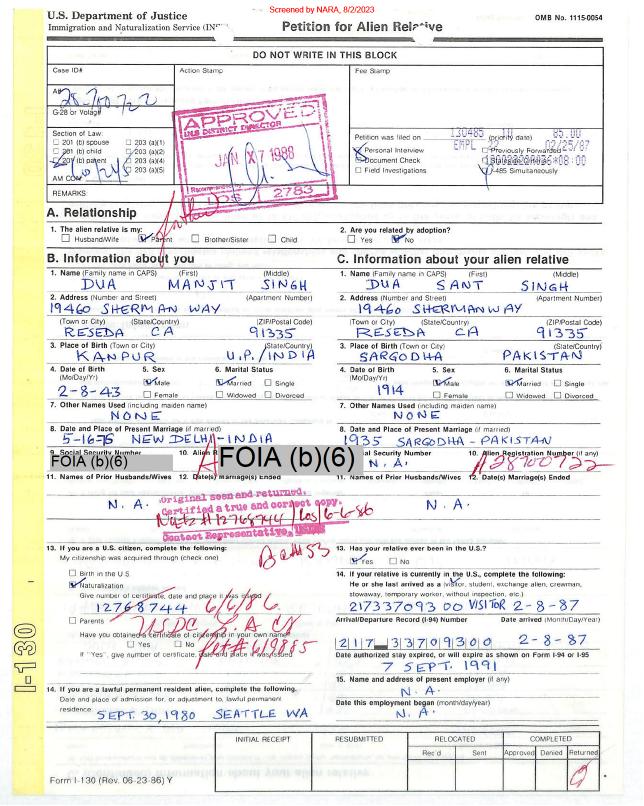 Screened by NARA, 8/2/2023
U.S. Department of Justice
Immigration and Naturalization Service
Petition for Alien Relative
OMB No. 1115-0054
DO NOT WRITE IN THIS BLOCK
Case ID#
Action Stamp
Fee Stamp
A#
28-700-722
G-28 or Volag#
Section of Law:
☐ 201 (b) spouse ☐ 203 (a)(1)
☐ 201 (b) child ☐ 203 (a)(2)
☑ 201 (b) parent ☐ 203 (a)(4)
☐ 203 (a)(5)
AM CON
REMARKS:
APPROVED
DISTRICT DIRECTOR
JAN 7 1988
LOS 2783
Petition was filed on (priority date)
130485 85.00
EMPL 02/25/87
☑ Personal Interview ☐ Previously Forwarded
☑ Document Check
☐ Field Investigations ☑ I-485 Simultaneously
A. Relationship
1. The alien relative is my:
☐ Husband/Wife ☑ Parent ☐ Brother/Sister ☐ Child
2. Are you related by adoption?
☐ Yes ☑ No
B. Information about you
1. Name (Family name in CAPS) (First) (Middle)
DUA MANJIT SINGH
2. Address (Number and Street) (Apartment Number)
19460 SHERMAN WAY
(Town or City) (State/Country) (ZIP/Postal Code)
RESEDA CA 91335
3. Place of Birth (Town or City) (State/Country)
KANPUR U.P./INDIA
4. Date of Birth (Mo/Day/Yr) 5. Sex 6. Marital Status
2-8-43
☑ Male ☐ Female
☑ Married ☐ Single ☐ Widowed ☐ Divorced
7. Other Names Used (including maiden name)
NONE
8. Date and Place of Present Marriage (if married)
5-16-75 NEW DELHI-INDIA
9. Social Security Number 10. Alien R
FOIA (b)(6)
FOIA (b)(6)
11. Names of Prior Husbands/Wives 12. Date(s) Marriage(s) Ended
N. A.
Original seen and returned.
Certified a true and correct copy.
Natz # 12768744 / Los / 6-6-86
Contact Representative,
13. If you are a U.S. citizen, complete the following:
My citizenship was acquired through (check one)
☐ Birth in the U.S.
☑ Naturalization
Give number of certificate, date and place it was issued
12768744 6/6/86
USDC LA CA
☐ Parents
Have you obtained a certificate of citizenship in your own name?
☐ Yes ☐ No
If "Yes", give number of certificate, date and place it was issued
Pet # 619885
14. If you are a lawful permanent resident alien, complete the following:
Date and place of admission for, or adjustment to, lawful permanent
residence: SEPT. 30, 1980 SEATTLE WA
C. Information about your alien relative
1. Name (Family name in CAPS) (First) (Middle)
DUA SANT SINGH
2. Address (Number and Street) (Apartment Number)
19460 SHERMAN WAY
(Town or City) (State/Country) (ZIP/Postal Code)
RESEDA CA 91335
3. Place of Birth (Town or City) (State/Country)
SARGODHA PAKISTAN
4. Date of Birth (Mo/Day/Yr) 5. Sex 6. Marital Status
1914
☑ Male ☐ Female
☑ Married ☐ Single ☐ Widowed ☐ Divorced
7. Other Names Used (including maiden name)
NONE
8. Date and Place of Present Marriage (if married)
1935 SARGODHA - PAKISTAN
ial Security Number 10. Alien Registration Number (if any)
N. A. A28700722
11. Names of Prior Husbands/Wives 12. Date(s) Marriage(s) Ended
N. A.
13. Has your relative ever been in the U.S.?
☑ Yes ☐ No
14. If your relative is currently in the U.S., complete the following:
He or she last arrived as a (visitor, student, exchange alien, crewman,
stowaway, temporary worker, without inspection, etc.)
217337093 00 VISITOR 2-8-87
Arrival/Departure Record (I-94) Number Date arrived (Month/Day/Year)
217 33709300 2-8-87
Date authorized stay expired, or will expire as shown on Form I-94 or I-95
7 SEPT. 1991
15. Name and address of present employer (if any)
N. A.
Date this employment began (month/day/year)
N. A.
INITIAL RECEIPT RESUBMITTED RELOCATED COMPLETED
Rec'd Sent Approved Denied Returned
Form I-130 (Rev. 06-23-86) Y
I-130